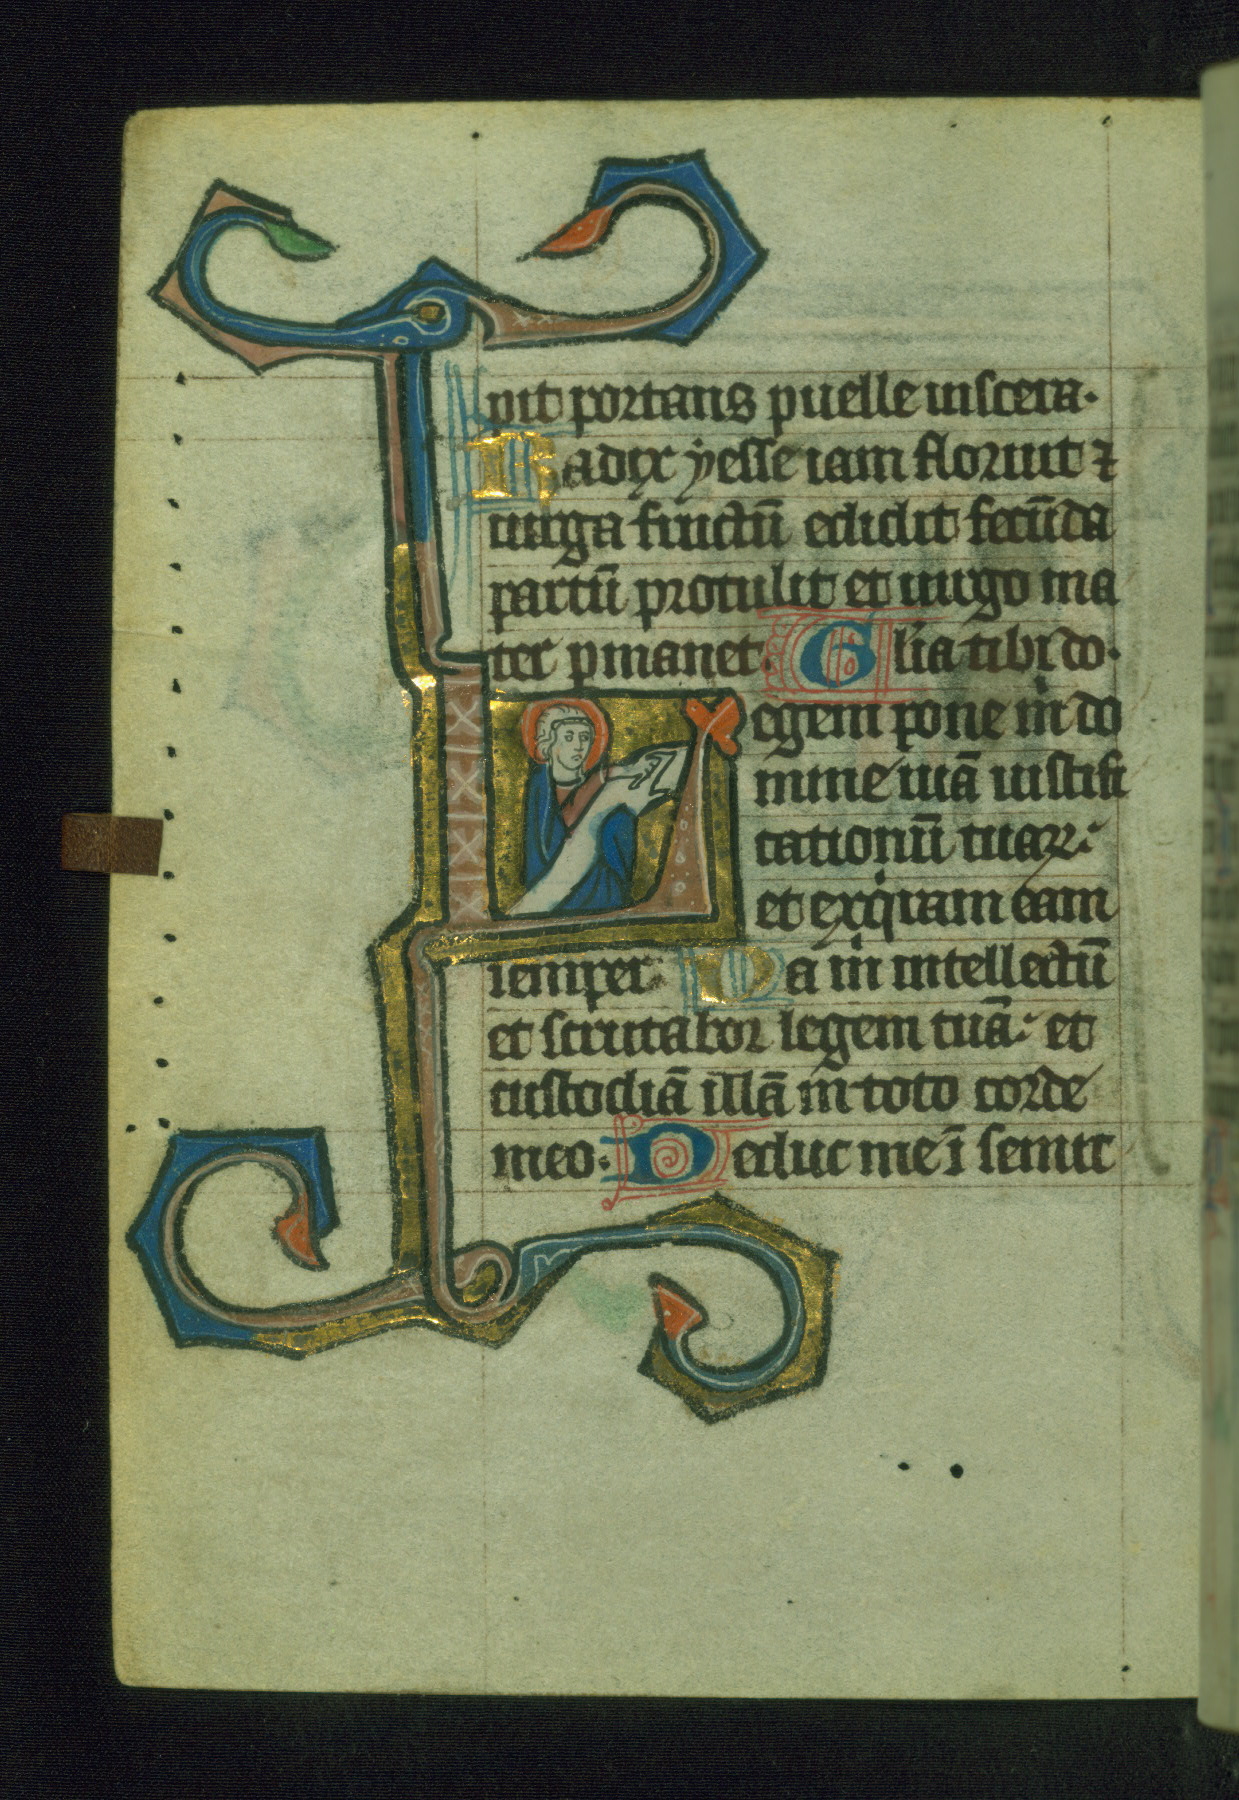 pit portans puelle uiscera.
Radix yesse iam floruit ⁊
uirga fructū edidit fecūda
partū protulit et uirgo ma
ter pmanet. Glia tibi do.
Legem pone m̍ do
mine uiā iustifi
cationū tuaꝝ:
et exq̍ram eam
semper. Da m̍ intellectū
et scrutabor legem tuā: et
custodiā illā in toto corde
meo. Deduc me ī semit